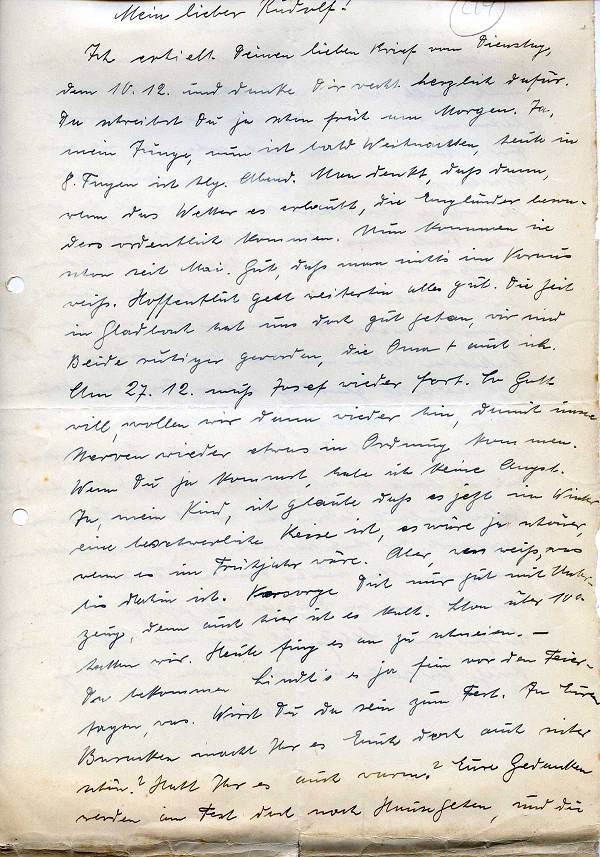 Mein lieber Rudolf!
Ich erhielt Deinen lieben Brief vom Dienstag,
dem 10.12. und danke Dir recht herzlich dafür.
Du schreibst Du ja schon früh am Morgen. Ja,
mein Junge, nun ist bald Weihnachten, heute in
8 Tagen ist hlg. Abend. Man denkt, daß dann,
wenn das Wetter es erlaubt, die Engländer beson-
ders ordentlich kommen. Nun kommen sie
schon seit Mai. Gut, daß man nichts im Voraus
weiß. Hoffentlich geht weiterhin alles gut. Die Zeit
in Gladbach hat uns doch gut getan, wir sind
Beide ruhiger geworden, die Oma + auch ich.
Am 27.12. muß Josef wieder fort. So Gott
will, wollen wir dann wieder hin, damit unsere
Nerven wieder etwas in Ordnung kommen.
Wenn Du ja kommst, habe ich keine Angst.
Ja, mein Kind, ich glaube daß es jetzt im Winter
eine beschwerliche Reise ist, es wäre ja schöner,
wenn es im Frühjahr wäre. Aber, wer weiß, was
bis dahin ist. Versorge Dich nur gut mit Unter-
zeug, denn auch hier ist es kalt. Schon über 10°
hatten wir. Heute fing es an zu schneien. –
Da bekommen Lindt's es ja fein vor den Feier-
tagen, was. Wirst Du da sein zum Fest. In Euren
Baracken macht Ihr es Euch doch auch sicher
schön? Habt Ihr es auch warm? Eure Gedanken
werden am Fest doch nach Hause gehen, und die